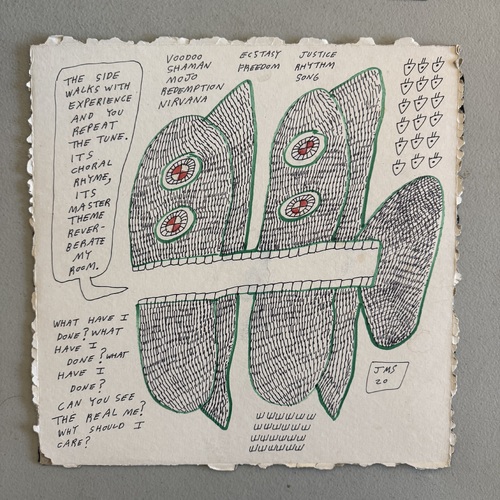 THE SIDE
WALKS WITH
EXPERIENCE
AND YOU
REPEAT
THE TUNE.
ITS
CHORAL
RHYME,
ITS
MASTER
THEME
REVER-
BERATE
MY
ROOM.
VOODOO
SHAMAN
MOJO
REDEMPTION
NIRVANA
ECSTASY
FREEDOM
JUSTICE
RHYTHM
SONG
WHAT HAVE I
DONE? WHAT
HAVE I
DONE? WHAT
HAVE I
DONE?
CAN YOU SEE
THE REAL ME?
WHY SHOULD I
CARE?
JMS
20